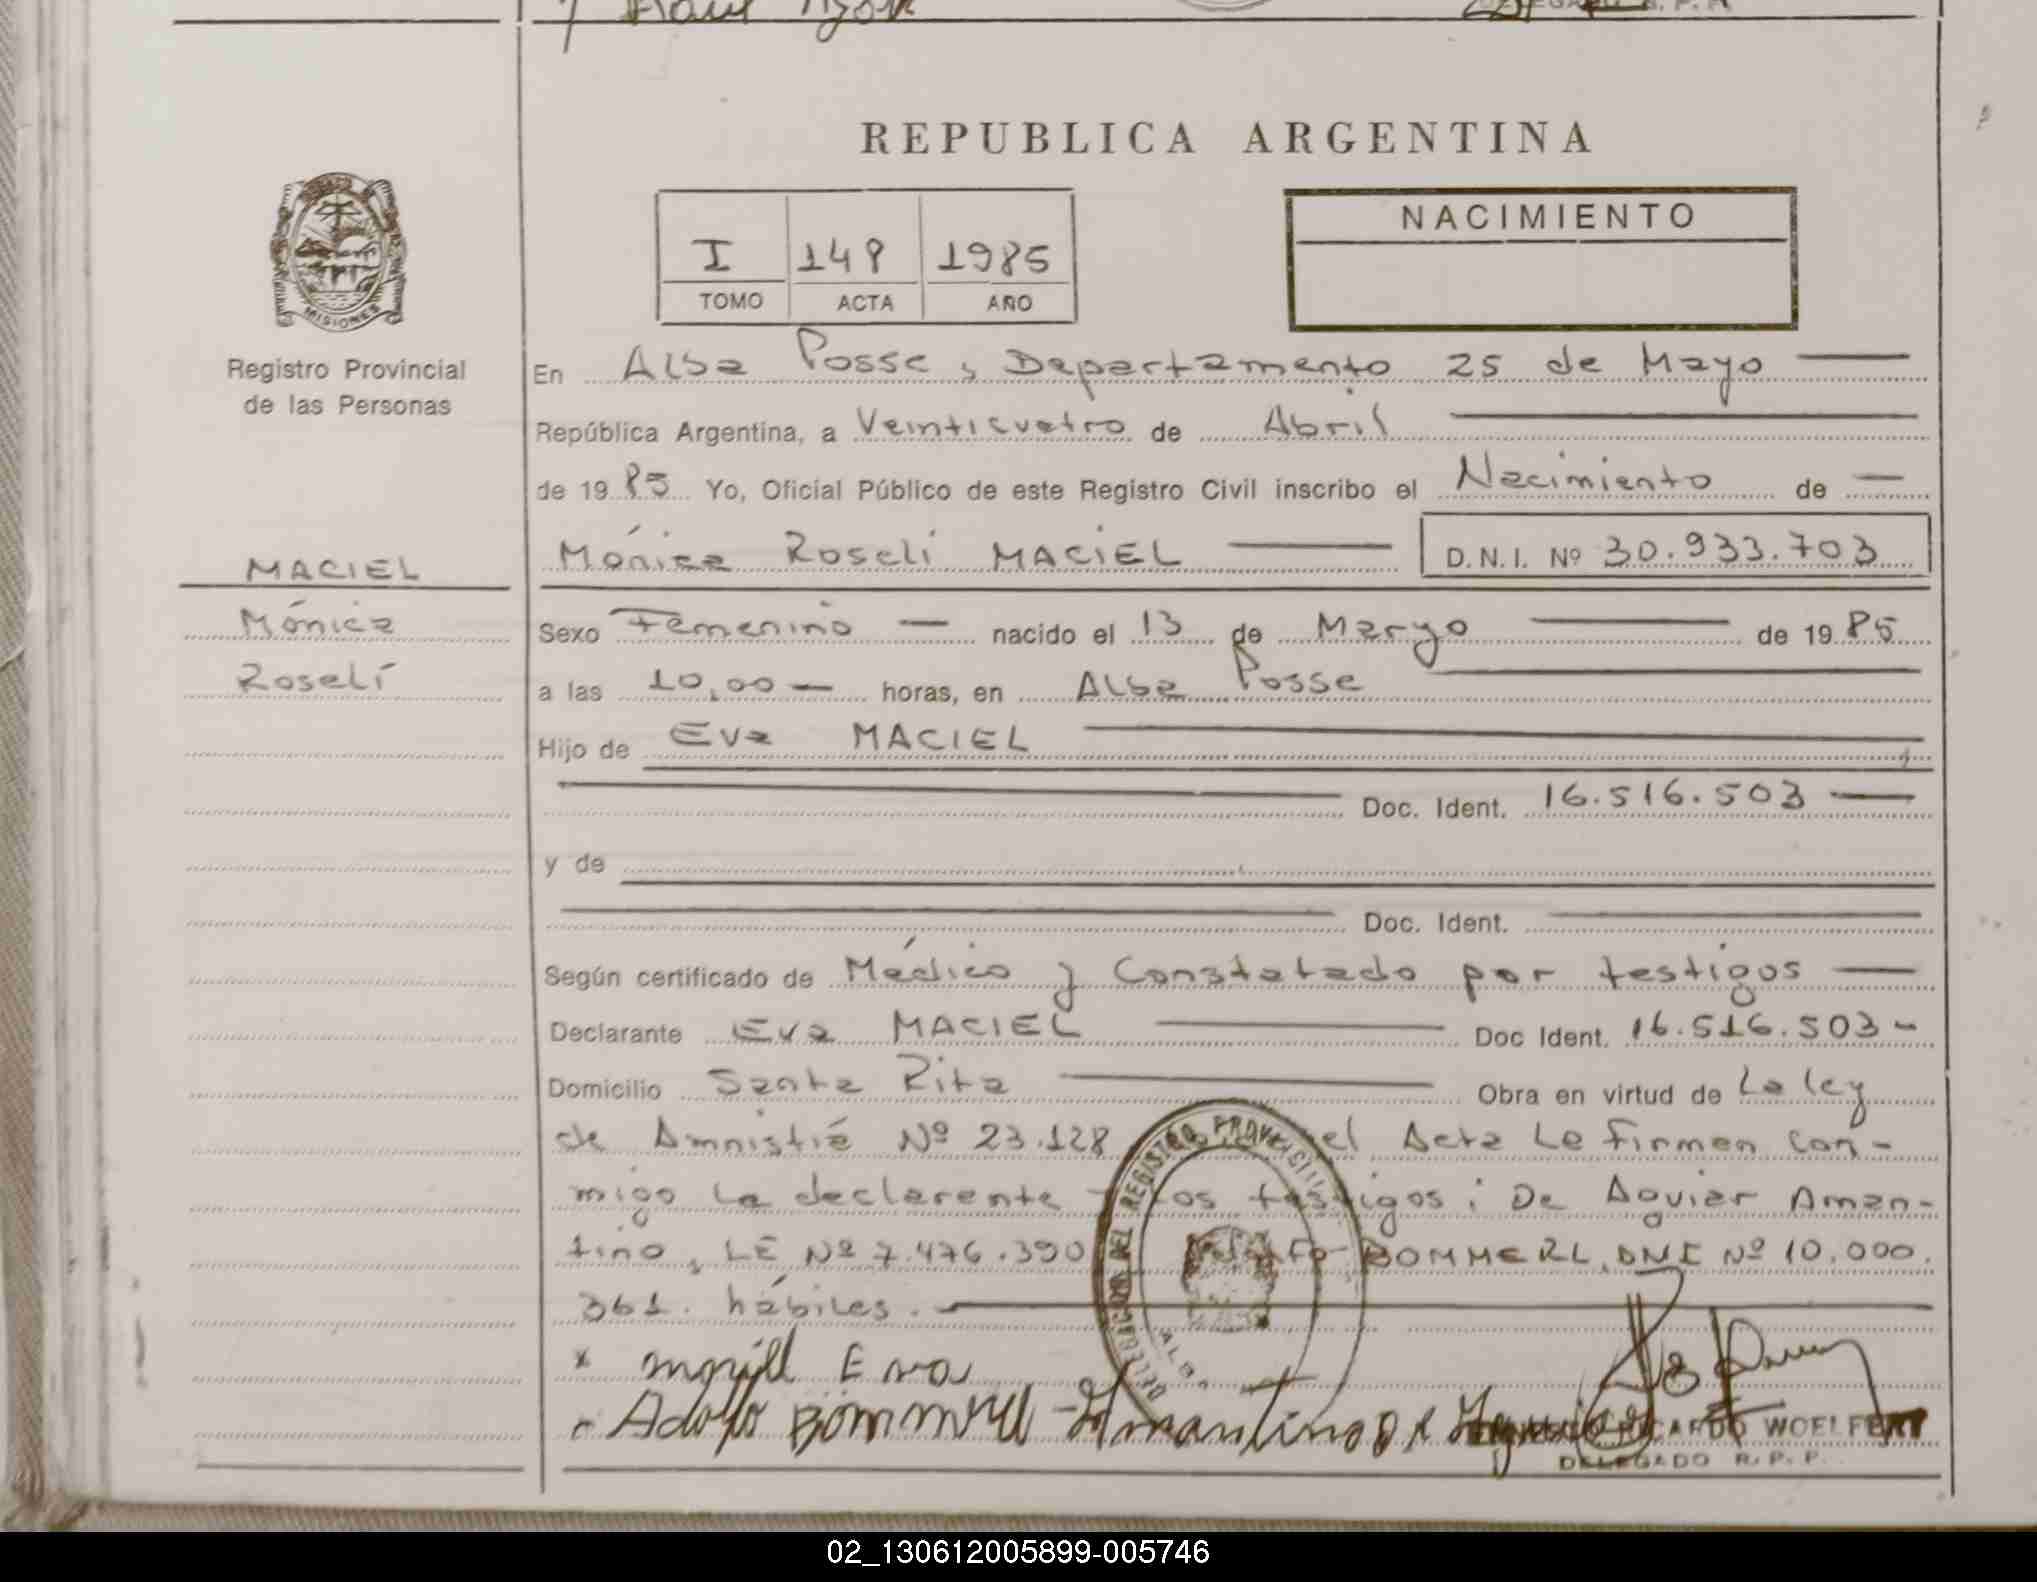 REPUBLICA ARGENTINA
I 148 1985
TOMO ACTA AÑO
NACIMIENTO
MISIONES
Registro Provincial
de las Personas
MACIEL
Mónica
Roselí
En Alba Posse, Departamento 25 de Mayo
República Argentina, a Veinticuatro de Abril
de 19 85 Yo, Oficial Público de este Registro Civil inscribo el Nacimiento de
Mónica Roselí MACIEL D.N.I. Nº 30.933.703
Sexo Femenino nacido el 13 de Marzo de 19 85
a las 10,00 horas, en Alba Posse
Hijo de Eva MACIEL
Doc. Ident. 16.516.503
y de
Doc. Ident.
Según certificado de Médico y Constatado por testigos
Declarante Eva MACIEL Doc Ident. 16.516.503-
Domicilio Santa Rita Obra en virtud de La ley
de Amnistía Nº 23.128 el Acta Le firman con-
migo la declarante los testigos: De Aguiar Aman-
tino, LE Nº 7.476.390 BOMMERL, DNI Nº 10.000.
361. hábiles.
DELEGACION DEL REGISTRO PROVINCIAL
ALBA
Eva
Adolfo Bommerl Amantino De Aguiar
RICARDO WOELFERT
DELEGADO R.P.P.
02_130612005899-005746